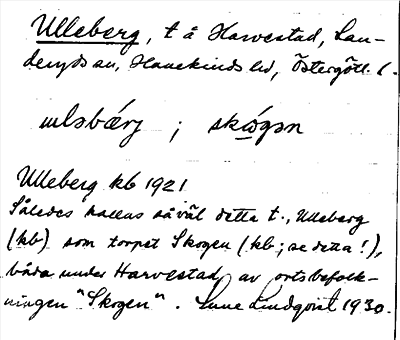 Ulleberg, t å Harvestad, Lan-
deryds sn, Hanekinds hd, Östergötl. l.
ulǝbærj ; skógǝn
Ulleberg kb 1921
Således kallas såväl detta t., Ulleberg
(kb) som torpet Skogen (kb; se detta!),
båda under Harvestad, av ortsbefolk-
ningen "Skogen". Sune Lindqvist 1930.